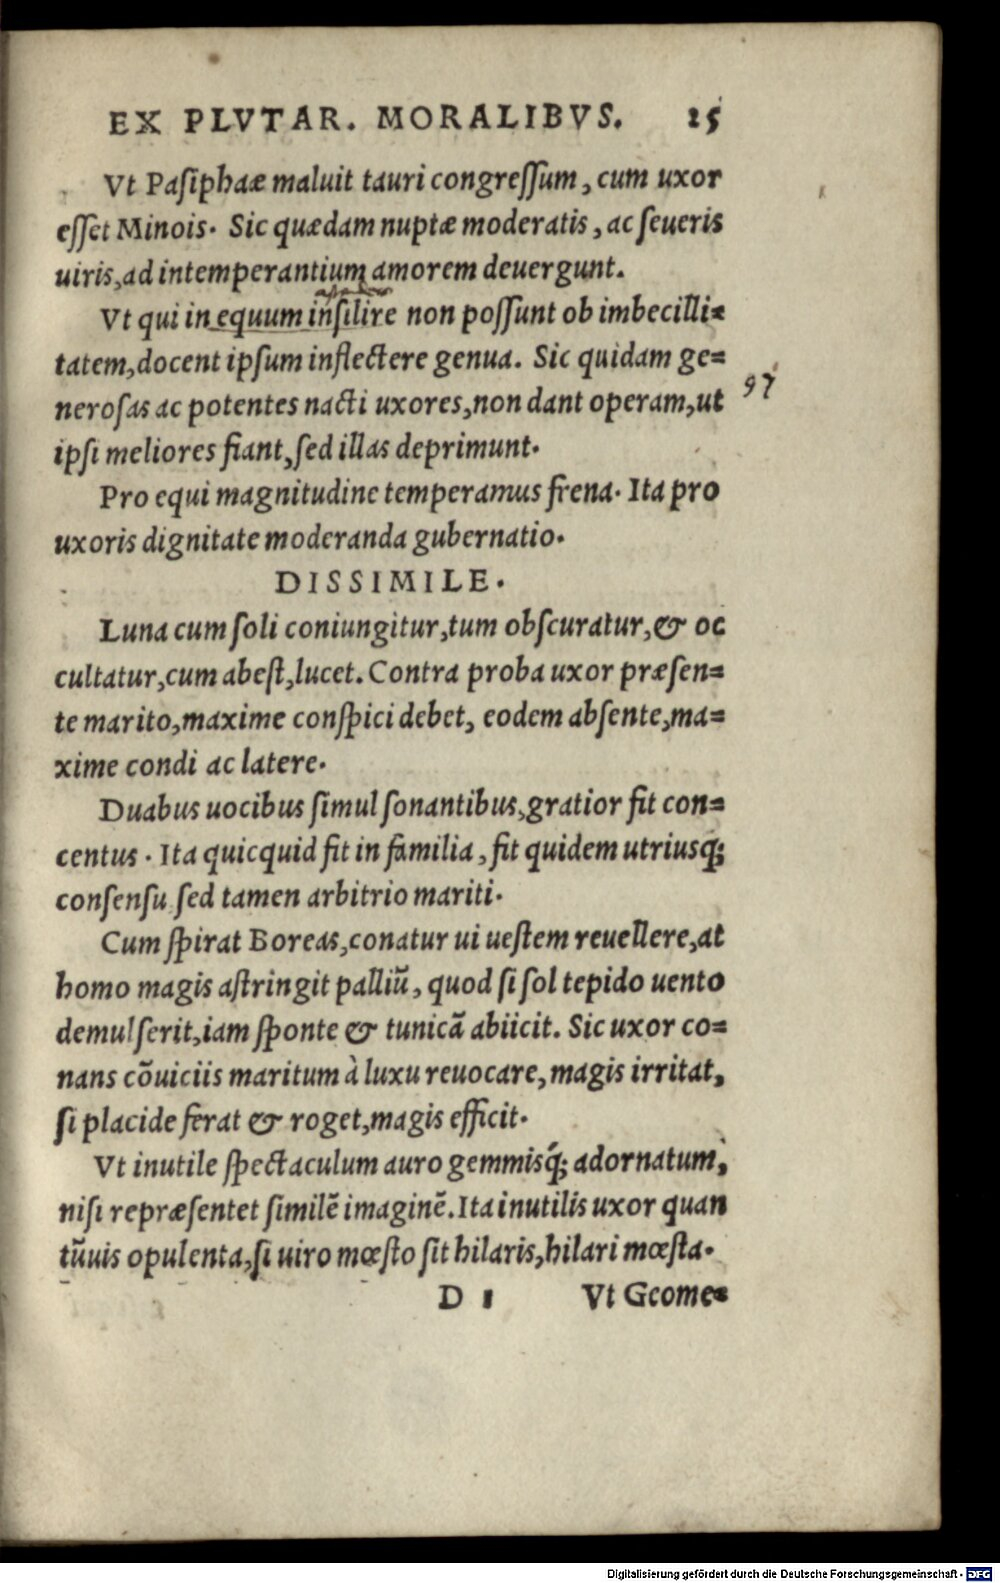 EX PLVTAR. MORALIBVS. 25
Vt Paſiphaæ maluit tauri congreſſum, cum uxor
eſſet Minois. Sic quædam nuptæ moderatis, ac ſeueris
uiris, ad intemperantium amorem deuergunt.
Vt qui in equum inſilire non poſſunt ob imbecilli=
tatem, docent ipſum inflectere genua. Sic quidam ge=
neroſas ac potentes nacti uxores, non dant operam, ut
97
ipſi meliores fiant, ſed illas deprimunt.
Pro equi magnitudine temperamus frena. Ita pro
uxoris dignitate moderanda gubernatio.
DISSIMILE.
Luna cum ſoli coniungitur, tum obſcuratur, & oc
cultatur, cum abeſt, lucet. Contra proba uxor præſen=
te marito, maxime conſpici debet, eodem abſente, ma=
xime condi ac latere.
Duabus uocibus ſimul ſonantibus, gratior fit con=
centus. Ita quicquid fit in familia, fit quidem utriusq;
conſenſu ſed tamen arbitrio mariti.
Cum ſpirat Boreas, conatur ui ueſtem reuellere, at
homo magis aſtringit palliũ, quod ſi ſol tepido uento
demulſerit, iam ſponte & tunicã abiicit. Sic uxor co=
nans cõuiciis maritum à luxu reuocare, magis irritat,
ſi placide ferat & roget, magis efficit.
Vt inutile ſpectaculum auro gemmisq́; adornatum,
niſi repræſentet ſimilẽ imaginẽ. Ita inutilis uxor quan
tũuis opulenta, ſi uiro mœſto ſit hilaris, hilari mœſta.
D 1 Vt Geome=
Digitalisierung gefördert durch die Deutsche Forschungsgemeinschaft - DFG